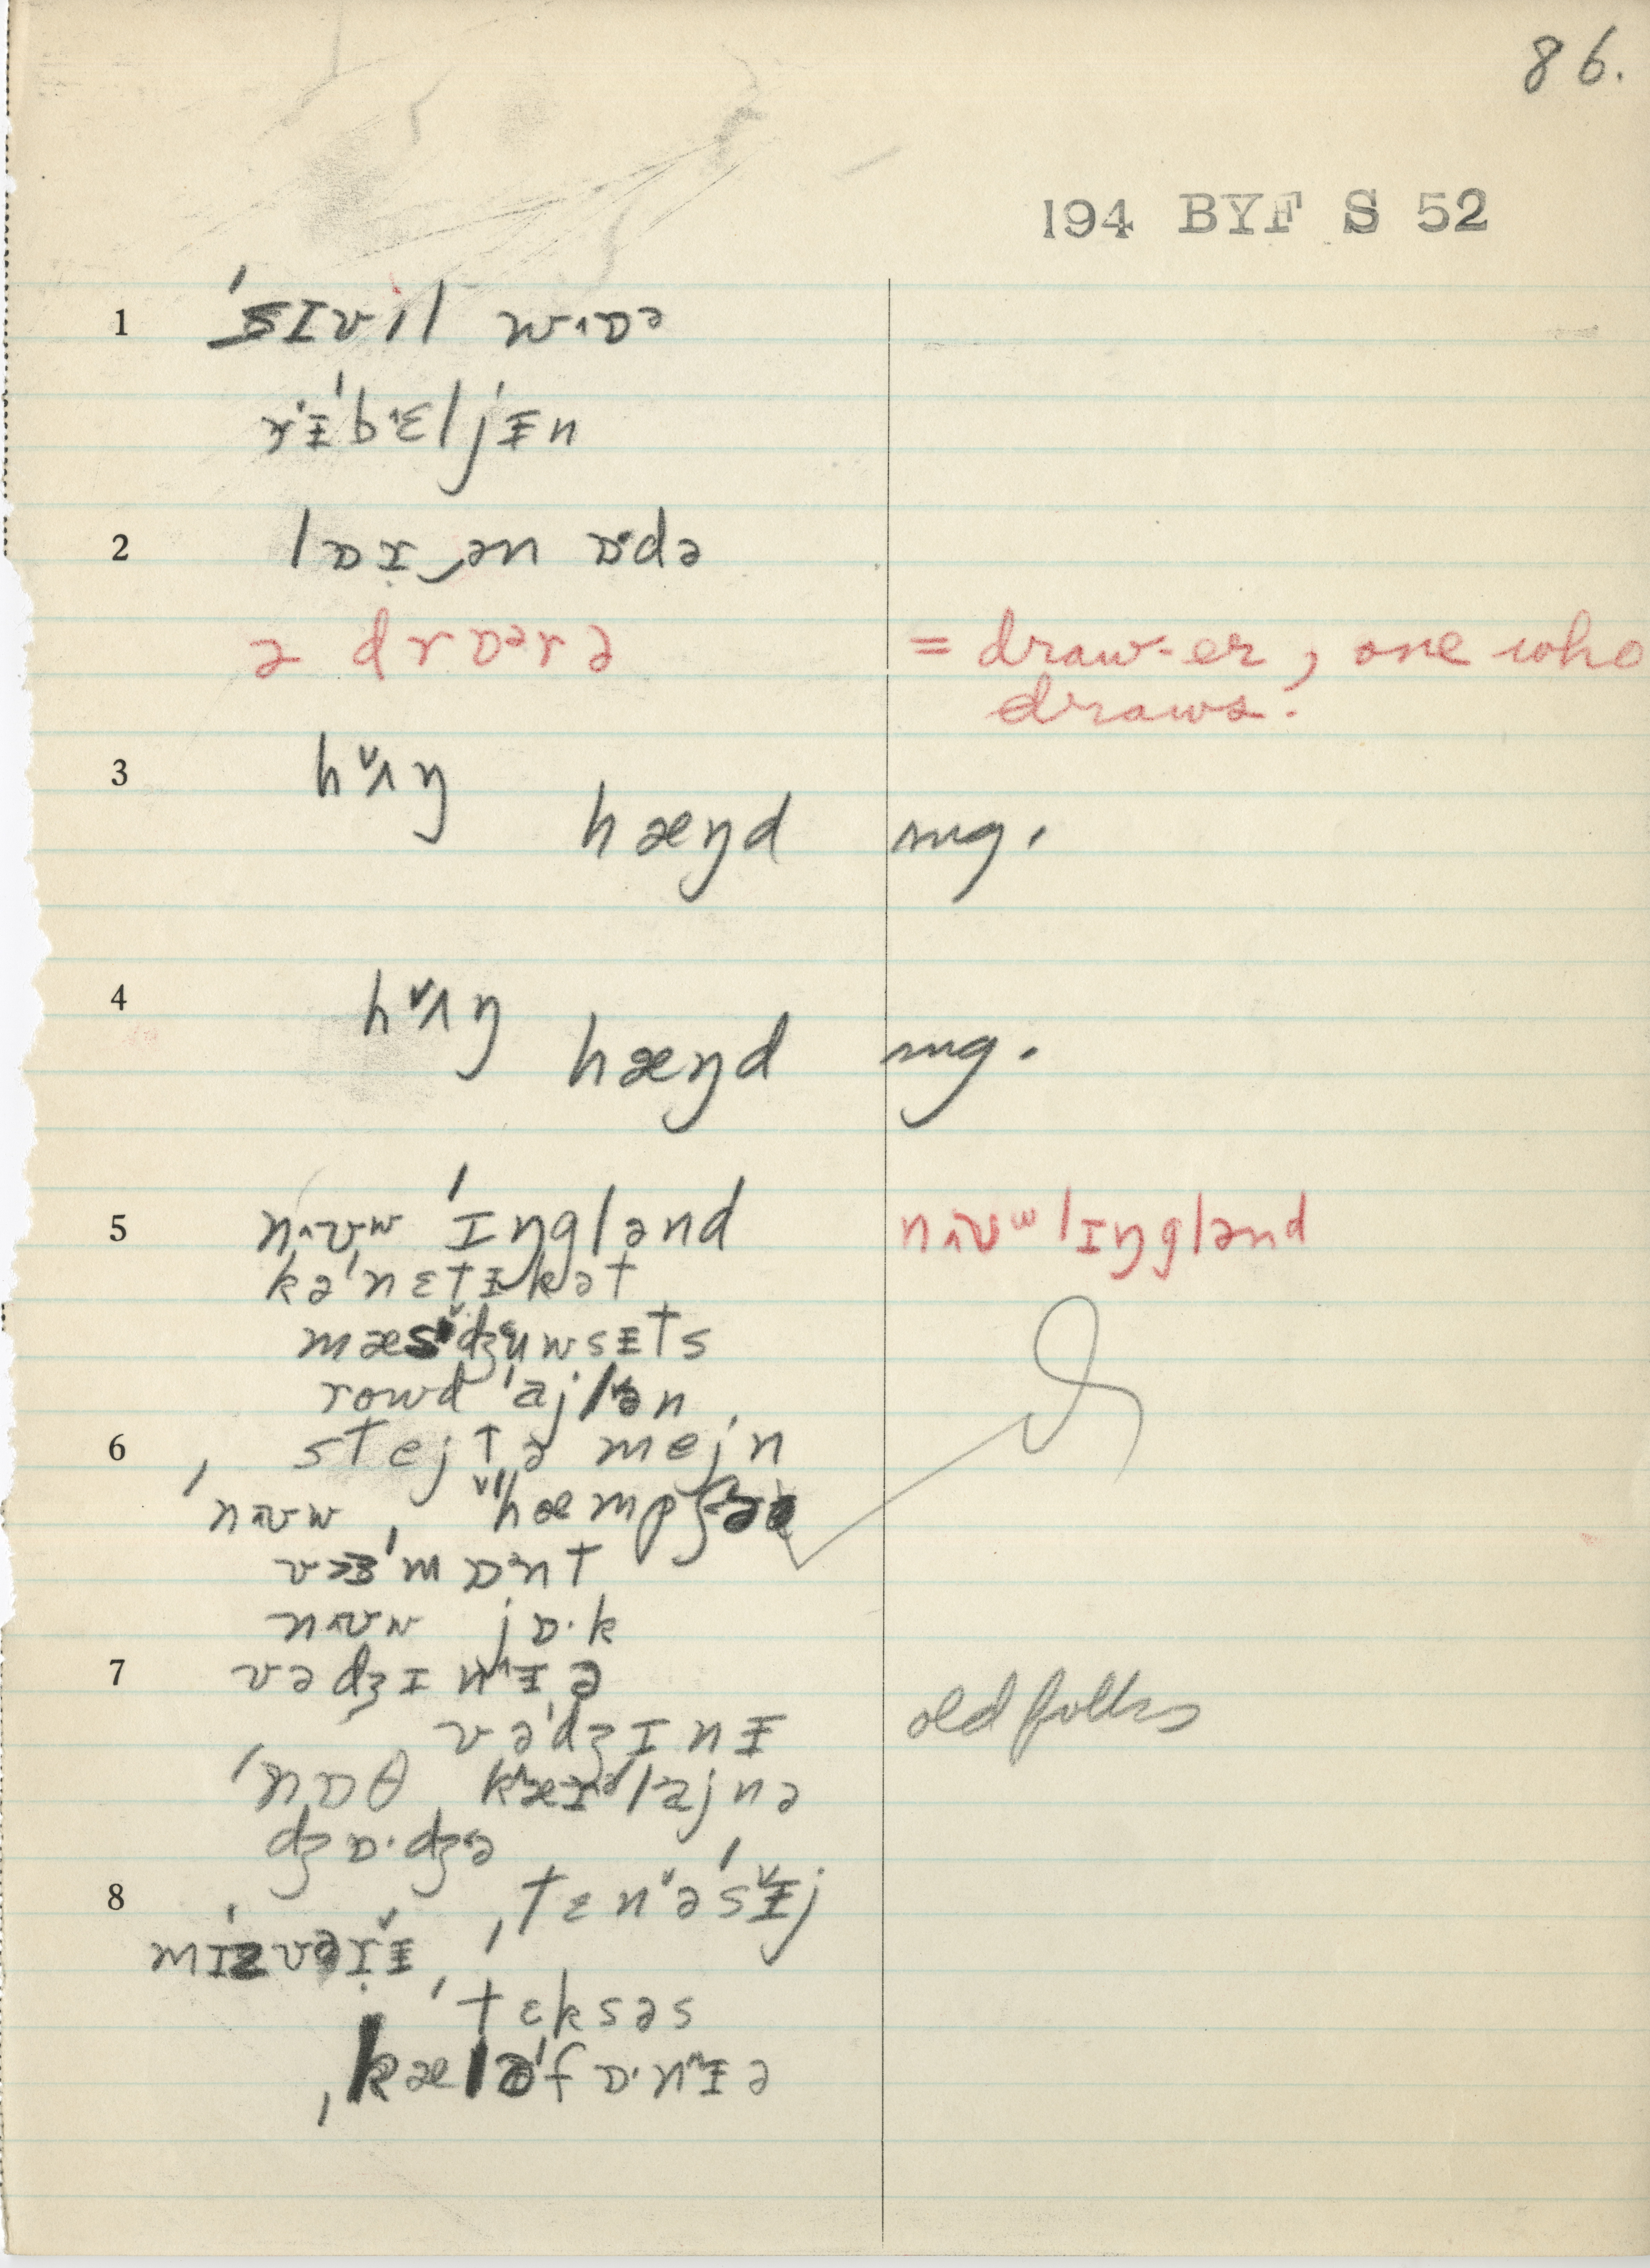 86.
194 BYF S 52
1 ˈsɪvɪl wɒə
rɨˈbɛljɨn
2 lɒɪ̣‿ən ɒdə
ə drɒərə = draw-er, one who
draws.
3 hʌŋ
hæŋd mg.
4 hʌŋ
hæŋd mg.
5 nʊw ˈɪŋglənd nʊʷ ˈɪŋglənd
kəˈnɛtɨkət
mæsˈdʒuwsɨts
rowd ˈajlən
6 ˌstejt ə ˈmejn
ˈnʊw ˌhæmpʃə
vəˈmɒnt
nʊw jɒ·k
7 vədʒɪnɨə
vəˈdʒɪnɨ old folks
ˈnɒθ kæɪəˈlajnə
dʒɒ·dʒə
8 ˌtɛnəˈsɨj
mɪˈzʊəɪ̣ɨ
ˈtɛksəs
ˌkæləˈfɒ·nɨə